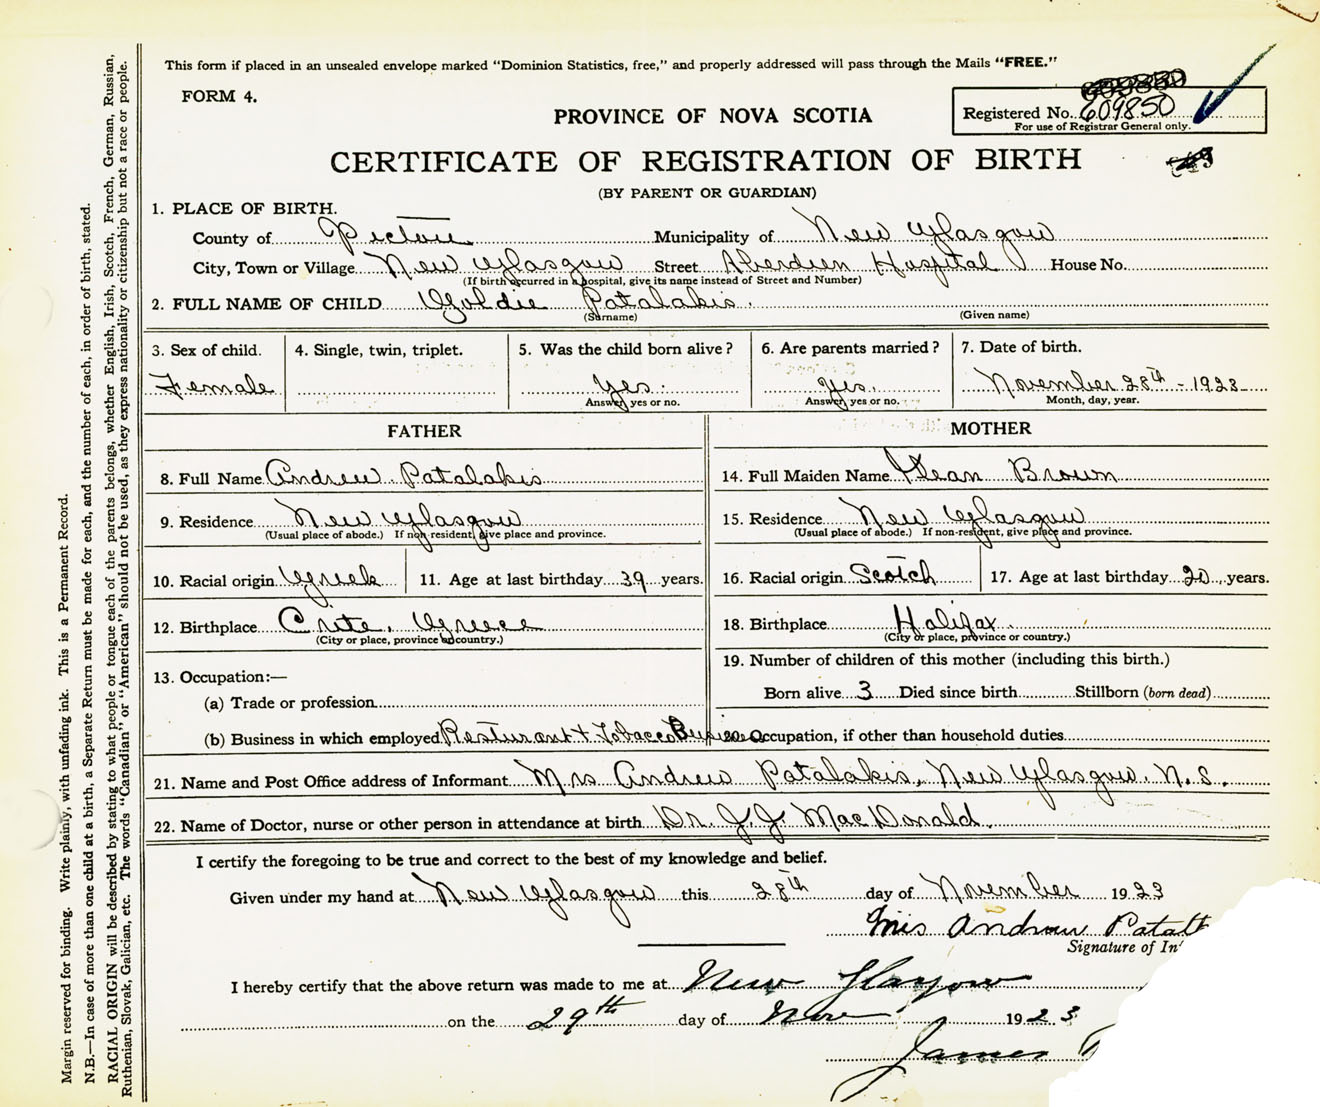 This form if placed in an unsealed envelope marked "Dominion Statistics, free," and properly addressed will pass through the Mails "FREE."
FORM 4.
PROVINCE OF NOVA SCOTIA
Registered No. 609850
For use of Registrar General only.
CERTIFICATE OF REGISTRATION OF BIRTH
(BY PARENT OR GUARDIAN)
1. PLACE OF BIRTH.
County of Pictou Municipality of New Glasgow
City, Town or Village New Glasgow Street Aberdeen Hospital House No.
(If birth occurred in a hospital, give its name instead of Street and Number)
2. FULL NAME OF CHILD Goldie Patalakis.
(Surname) (Given name)
3. Sex of child. 4. Single, twin, triplet. 5. Was the child born alive? 6. Are parents married? 7. Date of birth.
Female Yes. Yes. November 28th - 1923
Answer yes or no. Answer yes or no. Month, day, year.
FATHER MOTHER
8. Full Name Andrew Patalakis 14. Full Maiden Name Jean Brown
9. Residence New Glasgow 15. Residence New Glasgow
(Usual place of abode.) If non-resident, give place and province. (Usual place of abode.) If non-resident, give place and province.
10. Racial origin Greek 11. Age at last birthday 39 years. 16. Racial origin Scotch 17. Age at last birthday 20 years.
12. Birthplace Crete, Greece 18. Birthplace Halifax.
(City or place, province or country.) (City or place, province or country.)
13. Occupation:— 19. Number of children of this mother (including this birth.)
(a) Trade or profession Born alive 3 Died since birth Stillborn (born dead)
(b) Business in which employed Resturant + Tobacco Business 20. Occupation, if other than household duties
21. Name and Post Office address of Informant Mrs Andrew Patalakis, New Glasgow. N. S.
22. Name of Doctor, nurse or other person in attendance at birth Dr. J. J. MacDonald.
I certify the foregoing to be true and correct to the best of my knowledge and belief.
Given under my hand at New Glasgow this 28th day of November 1923
Mrs Andrew
Signature of
I hereby certify that the above return was made to me at New Glasgow
on the 29th day of Nov 1923
James
Margin reserved for binding. Write plainly, with unfading ink. This is a Permanent Record.
N.B.—In case of more than one child at a birth, a Separate Return must be made for each, and the number of each, in order of birth, stated.
RACIAL ORIGIN will be described by stating to what people or tongue each of the parents belongs, whether English, Irish, Scotch, French, German, Russian,
Ruthenian, Slovak, Galician, etc. The words "Canadian" or "American" should not be used, as they express nationality or citizenship but not a race or people.